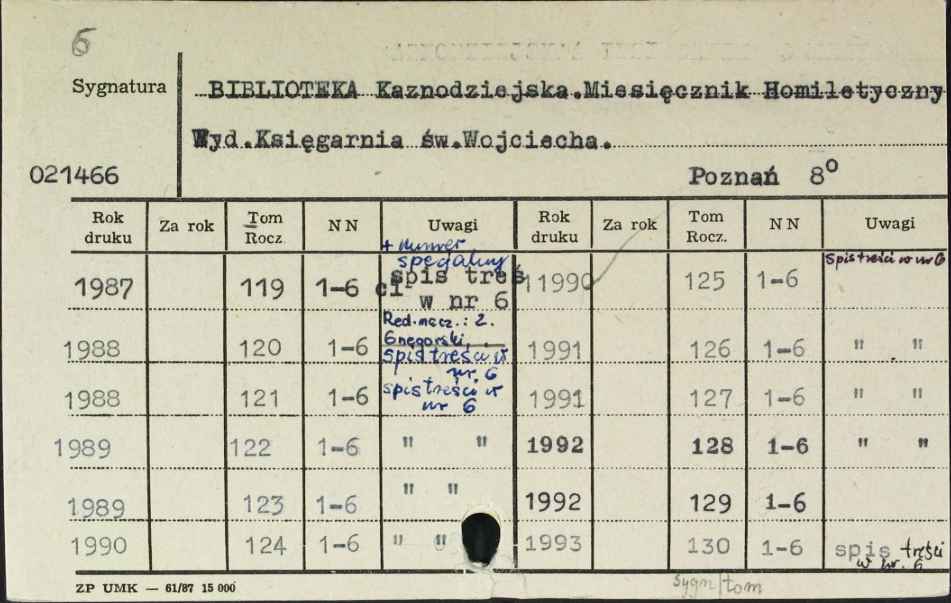 6
Sygnatura BIBLIOTEKA Kaznodziejska.Miesięcznik Homiletyczny
Wyd.Księgarnia św.Wojciecha.
021466 Poznań 8º
Rok druku Za rok Tom Rocz NN Uwagi Rok druku Za rok Tom Rocz. NN Uwagi
1987 119 1-6 + numer specjalny spis treś ci w nr 6 11990 125 1-6 spis treści w nr 6
1988 120 1-6 Red. nacz.: spis treści w nr. 6 1991 126 1-6 " "
1988 121 1-6 spis treści w nr 6 1991 127 1-6 " "
1989 122 1-6 " " 1992 128 1-6 " "
1989 123 1-6 " " 1992 129 1-6
1990 124 1-6 " " 1993 130 1-6 spis treści w nr. 6
ZP UMK — 61/87 15 000 sygn/tom